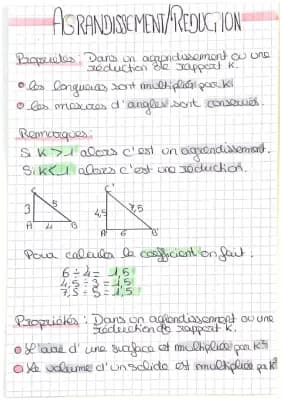 AGRANDISSEMENT/REDUCTION
Propriétés : Dans un agrandissement ou une
réduction de rapport K.
les longueurs sont multipliés par K
les mesures d'angles sont conservés.
Remarques :
Si K>1 alors c'est un agrandissement.
Si K<1 alors c'est une réduction.
C C'
3 5 4,5 7,5
A 4 B A' 6 B'
Pour calculer le coefficient on fait :
6 ÷ 4 = 1,5
4,5 ÷ 3 = 1,5
7,5 ÷ 5 = 1,5
Propriétés : Dans un agrandissement ou une
réduction de rapport K.
L'aire d'une surface est multiplié par K²
Le volume d'un solide est multiplié par K³